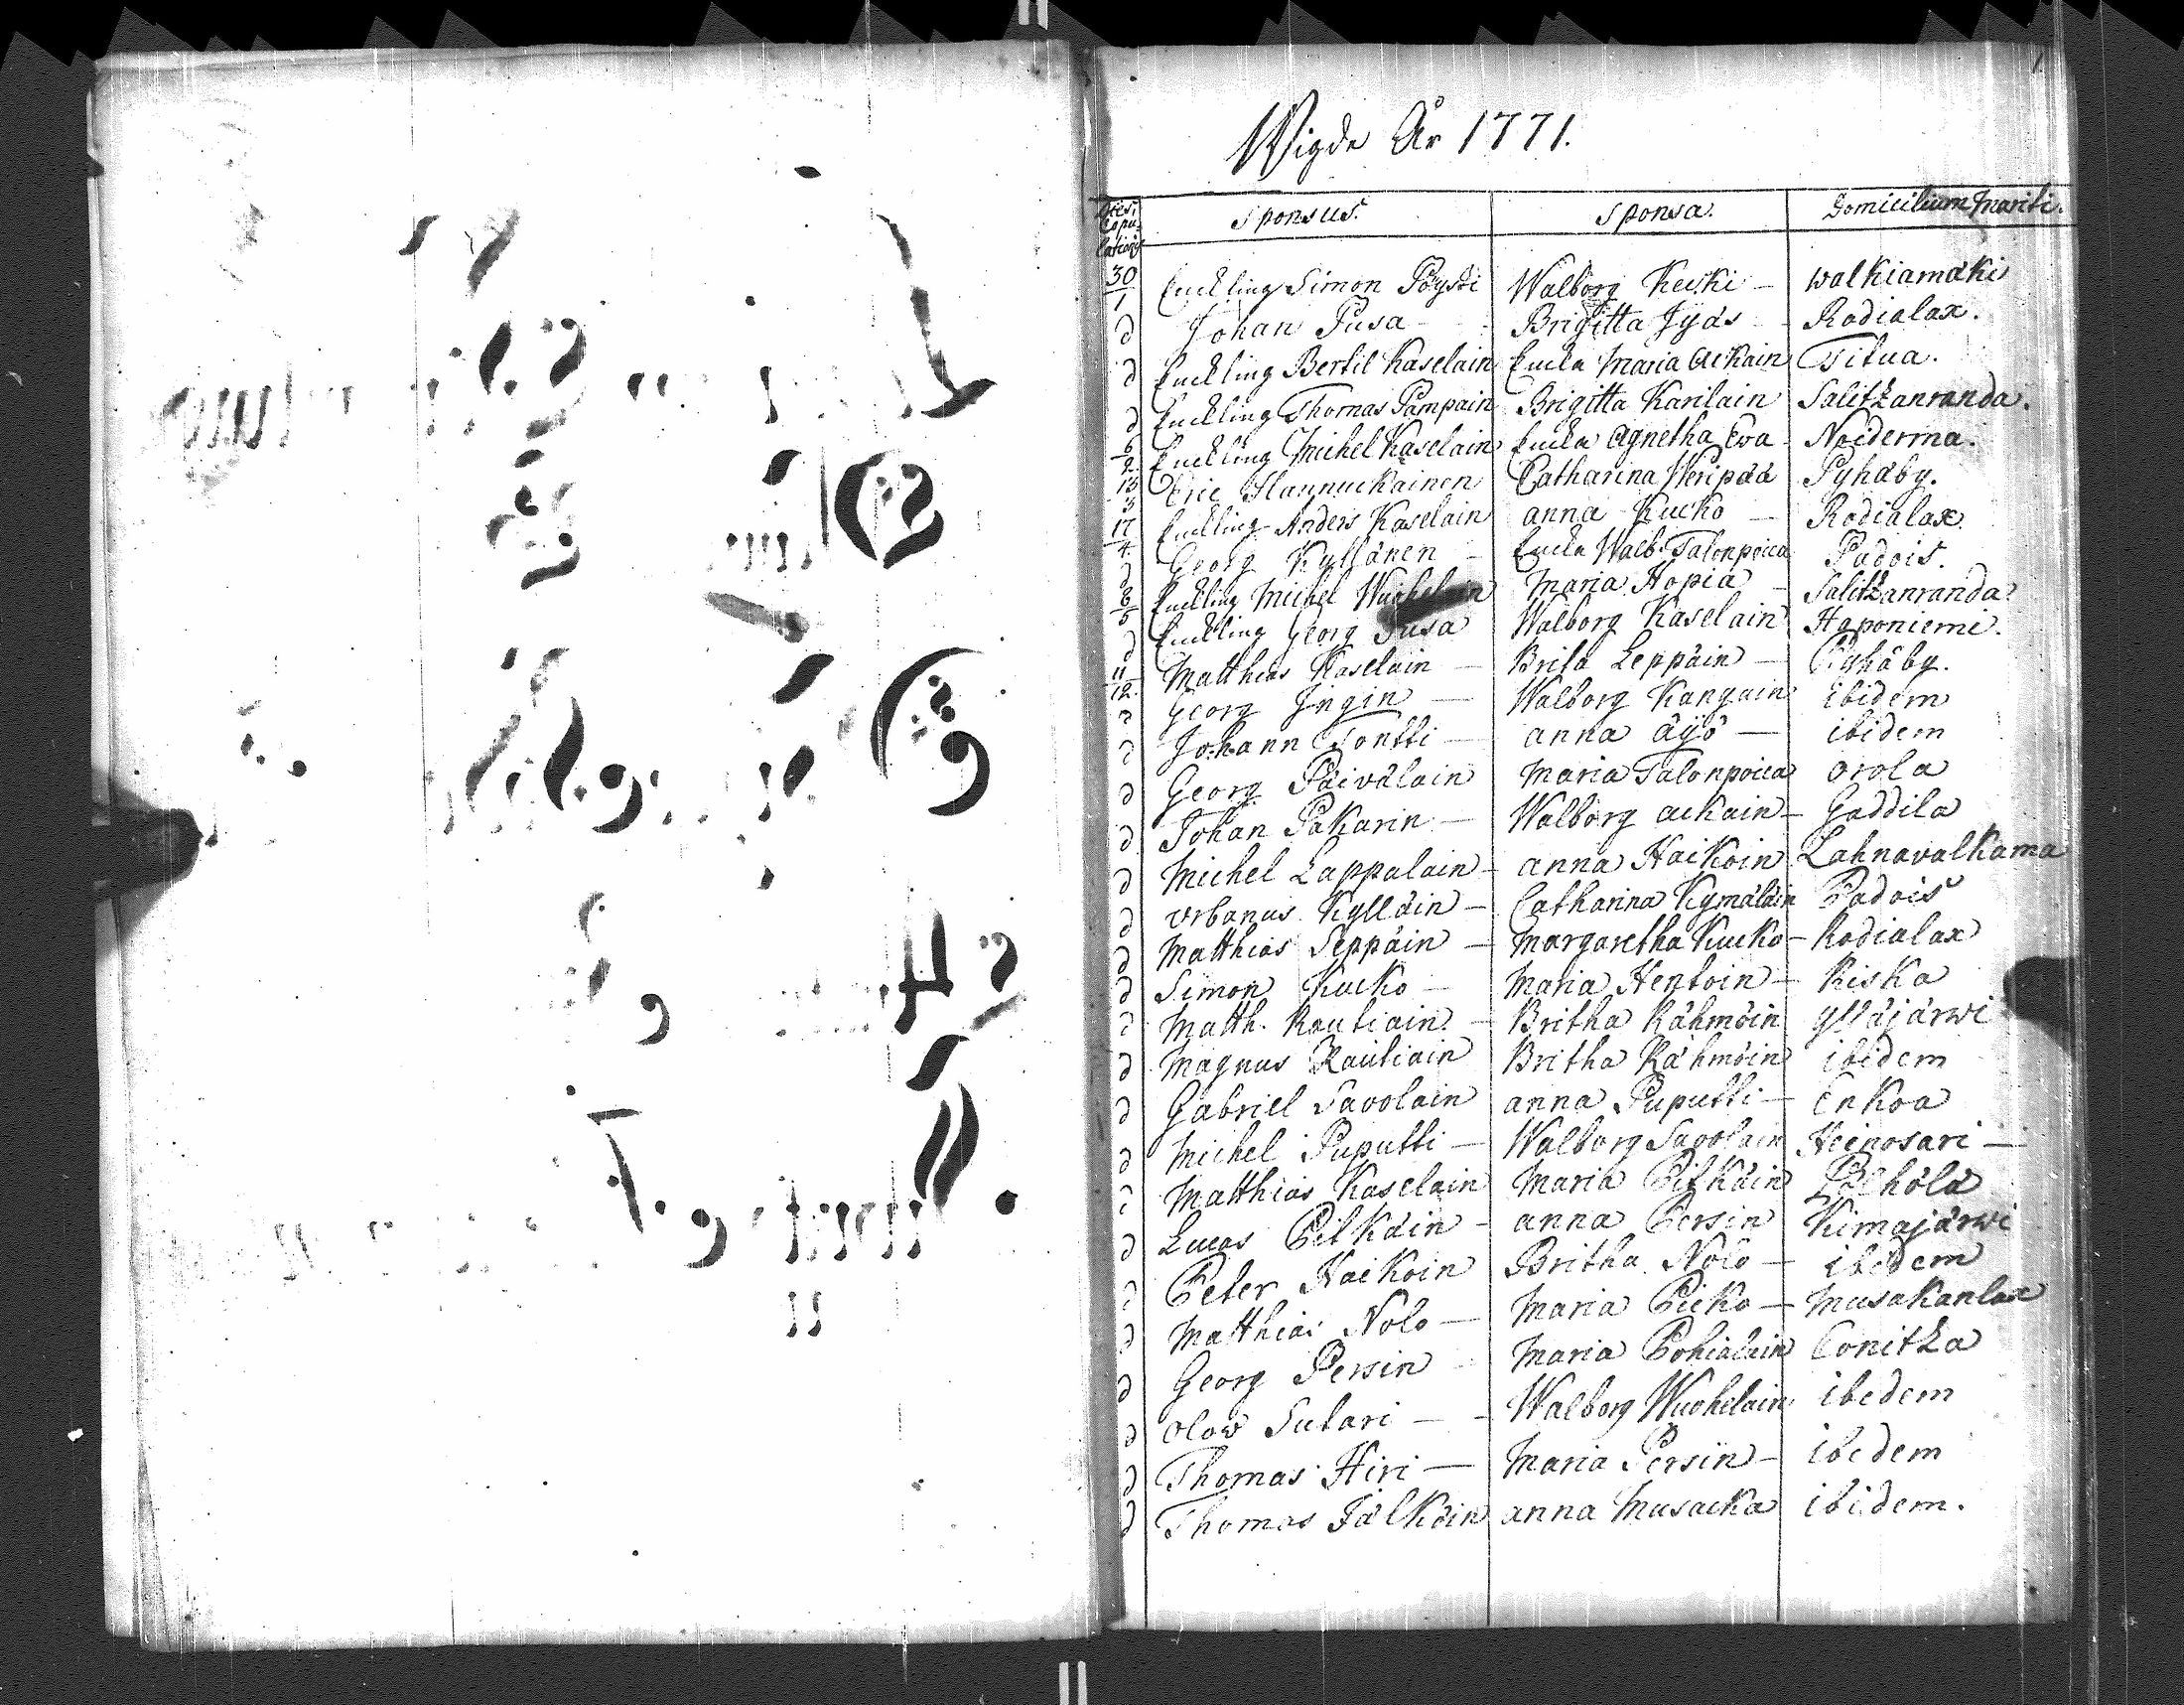 1
Wigde År 1771.
Dies Copulationis Sponsus. Sponsa. Domicilium Mariti.
30/1 Enckling Simon Pöysti Walborg Kecki – walkiamäki
d Johan Pusa Brigitta Jyäs Rodialax.
d Enckling Bertil Kaselain Encka Maria Ackain Tsitua.
d Enckling Thomas Pampain Brigitta Karilain Salitzanranda.
6/2 Enckling Michel Kaselain Encka Agnetha Ewa Noiderma.
13/3 Eric Hannuckainen Catharina Weripää Pyhäby.
17/4 Enckling Anders Kaselain anna Kucko – Rodialax.
d Georg Kyllänen – Encka Walb. Talonpoica Padois.
8/5 Enckling Michel Wuohelain Maria Hopia – Salitzanranda
d Enckling Georg Pusa Walborg Kaselain Haponiemi.
11/12 Matthias Kaselain – Brita Leppäin – Pyhäby.
d Georg Ingin – Walborg Kangain ibidem
d Johann Tontti – anna äijö – ibidem
d Georg Päivälain Maria Talonpoica orola
d Johan Pakarin – Walborg ackain – Gaddila
d Michel Lappalain – anna Haikoin Lahnavalkama
d Urbanus Kylläin – Catharina Kymäläin Padois
d Matthias Seppäin – Margaretha Kucko – Rodialax
d Simon Kucko – Maria Hentoin – Kiska
d Matth. Rautiain. – Britha Rähmöin Ylläjärwi
d Magnus Rautiain Britha Rähmöin ibidem
d Gabriel Savolain anna Puputti – Enkoa
d Michel Puputti – Walborg Savolain Heinosari –
d Matthias Kaselain Maria Pitkäin
d Lucas Pitkäin – anna Persin Kimajärwi
d Peter Haikoin Britha Nolo – ibidem
d Matthias Nolo – Maria Picko – Musakanlax
d Georg Persin – Maria Pohialain Conitza
d Olow Sutari – – Walborg Wuohelain ibidem
d Thomas Hiri – Maria Persin – ibidem
d Thomas Jälköin anna Musacka ibidem.